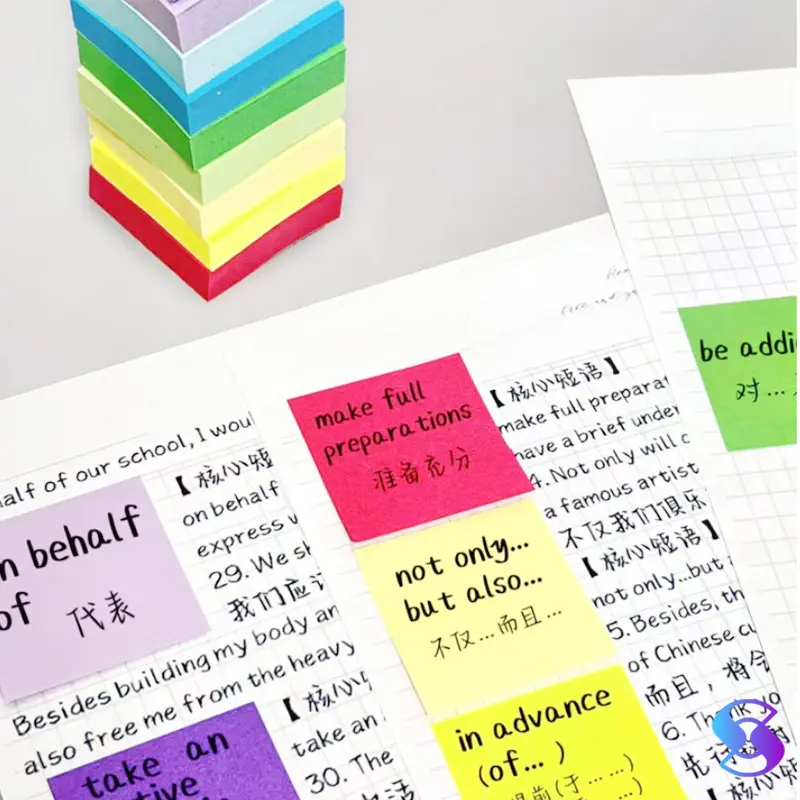 half of our school, I woul
【核心短
on behalf
express w
29. We sh
我们应该
n behalf
of 代表
Besides building my body an
also free me from the heavy
【核心短
take an
30. The
take an
tive
make full
preparations
准备充分
【核心短语】
make full preparat
have a brief under
4. Not only will o
a famous artist
不仅我们俱乐
【核心短语】
not only...but
5. Besides, th
of Chinese cu
而且，将会
6. Thank you
先行致谢
not only...
but also...
不仅...而且...
in advance
(of... )
提前(于... ...)
be addic
对...